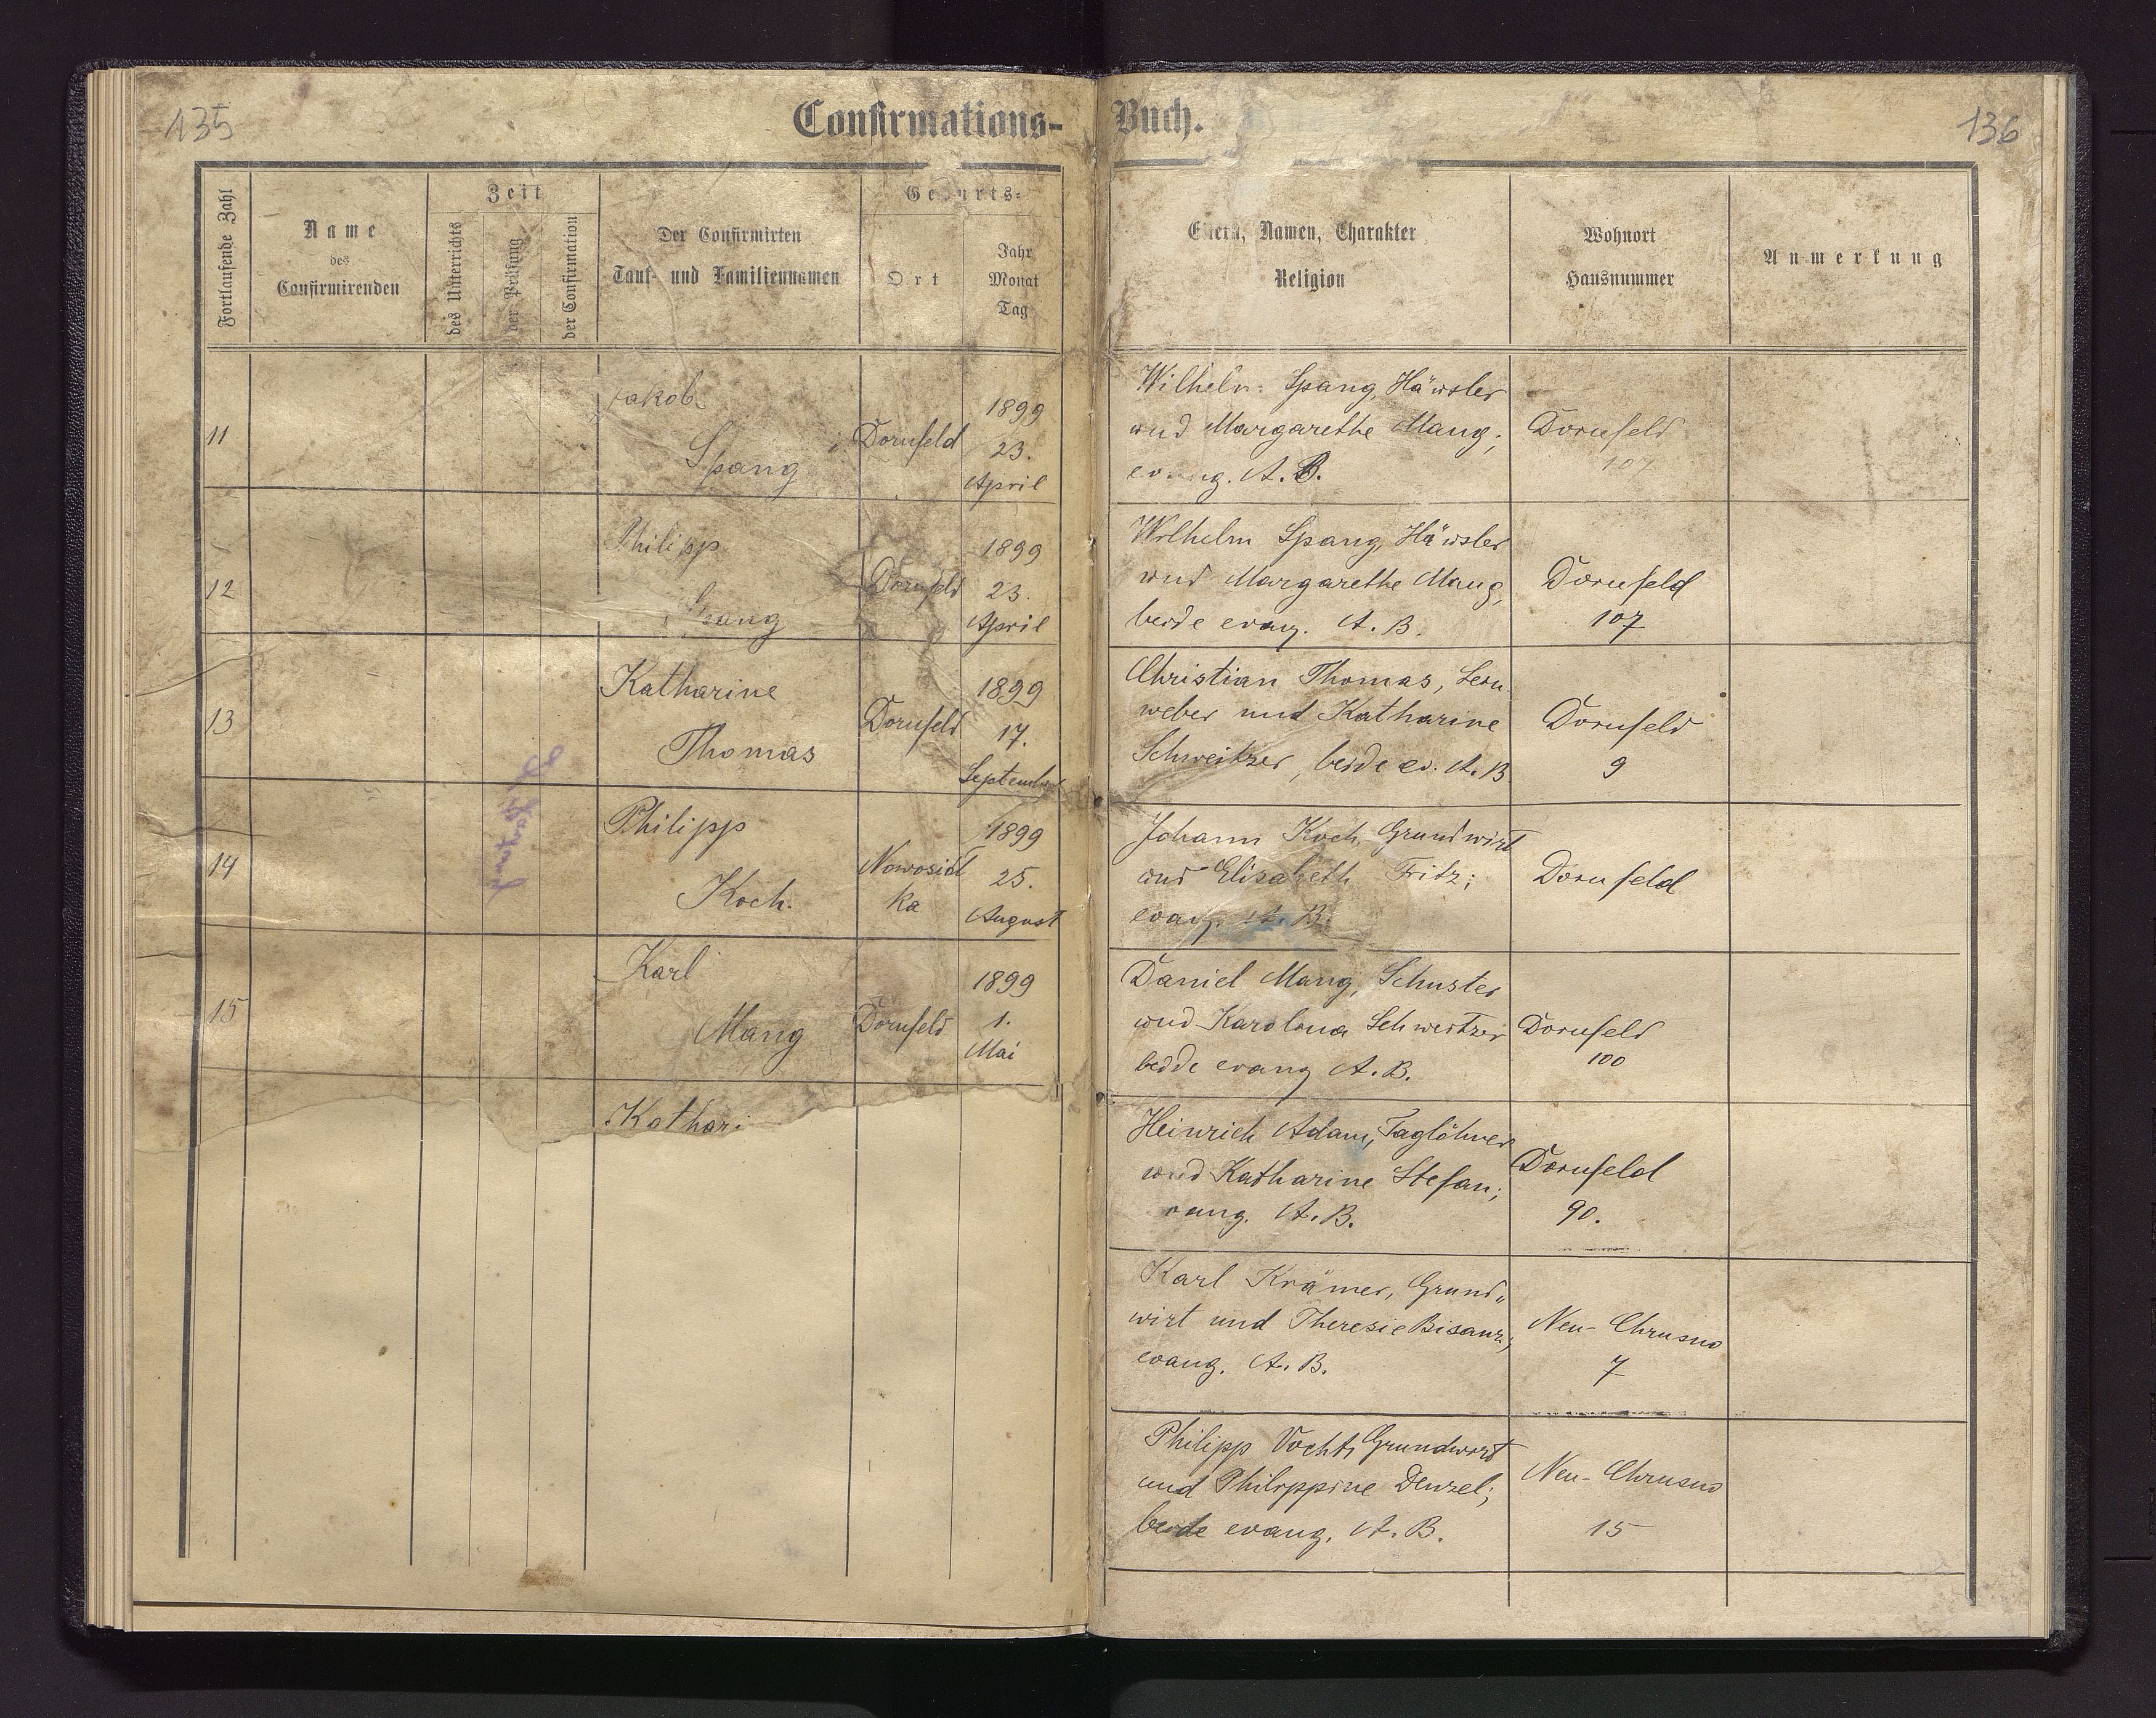 135
Confirmations-
Buch.
136
Fortlaufende Zahl
Name
des
Confirmirenden
Zeit
des Unterrichts
der Prüfung
der Confirmation
Der Confirmirten
Tauf- und Familiennamen
Geburts-
Ort
Jahr
Monat
Tag
Eltern, Namen, Charakter
Religion
Wohnort
Hausnummer
Anmerkung
11
Jakob
Spang
Dornfeld
1899
23.
April
Wilhelm Spang, Häusler
und Margarethe Mang,
evang. A. B.
Dornfeld
107
12
Philipp
Spang
Dornfeld
1899
23.
April
Wilhelm Spang, Häusler
und Margarethe Mang,
beide evang. A. B.
Dornfeld
107
13
Katharine
Thomas
Dornfeld
1899
17.
September
Christian Thomas, Lein-
weber und Katharine
Schweitzer, beide ev. A. B.
Dornfeld
9
14
Philipp
Koch.
Nowosiol
ka
1899
25.
August
Johann Koch, Grundwirt
und Elisabeth Fritz;
evang. A. B.
Dornfeld
15
Karl
Mang
Dornfeld
1899
1.
Mai
Daniel Mang, Schuster
und Karolina Schweitzer
beide evang A. B.
Dornfeld
100
Kathari
Heinrich Adam, Taglöhner
und Katharine Stefan;
evang. A. B.
Dornfeld
90.
Karl Krämer, Grund„
wirt und Theresie Bisanz;
evang. A. B.
Neu-Chrusno
7
Philipp Vocht, Grundwirt
und Philippine Denzel;
beide evang. A. B.
Neu-Chrusno
15